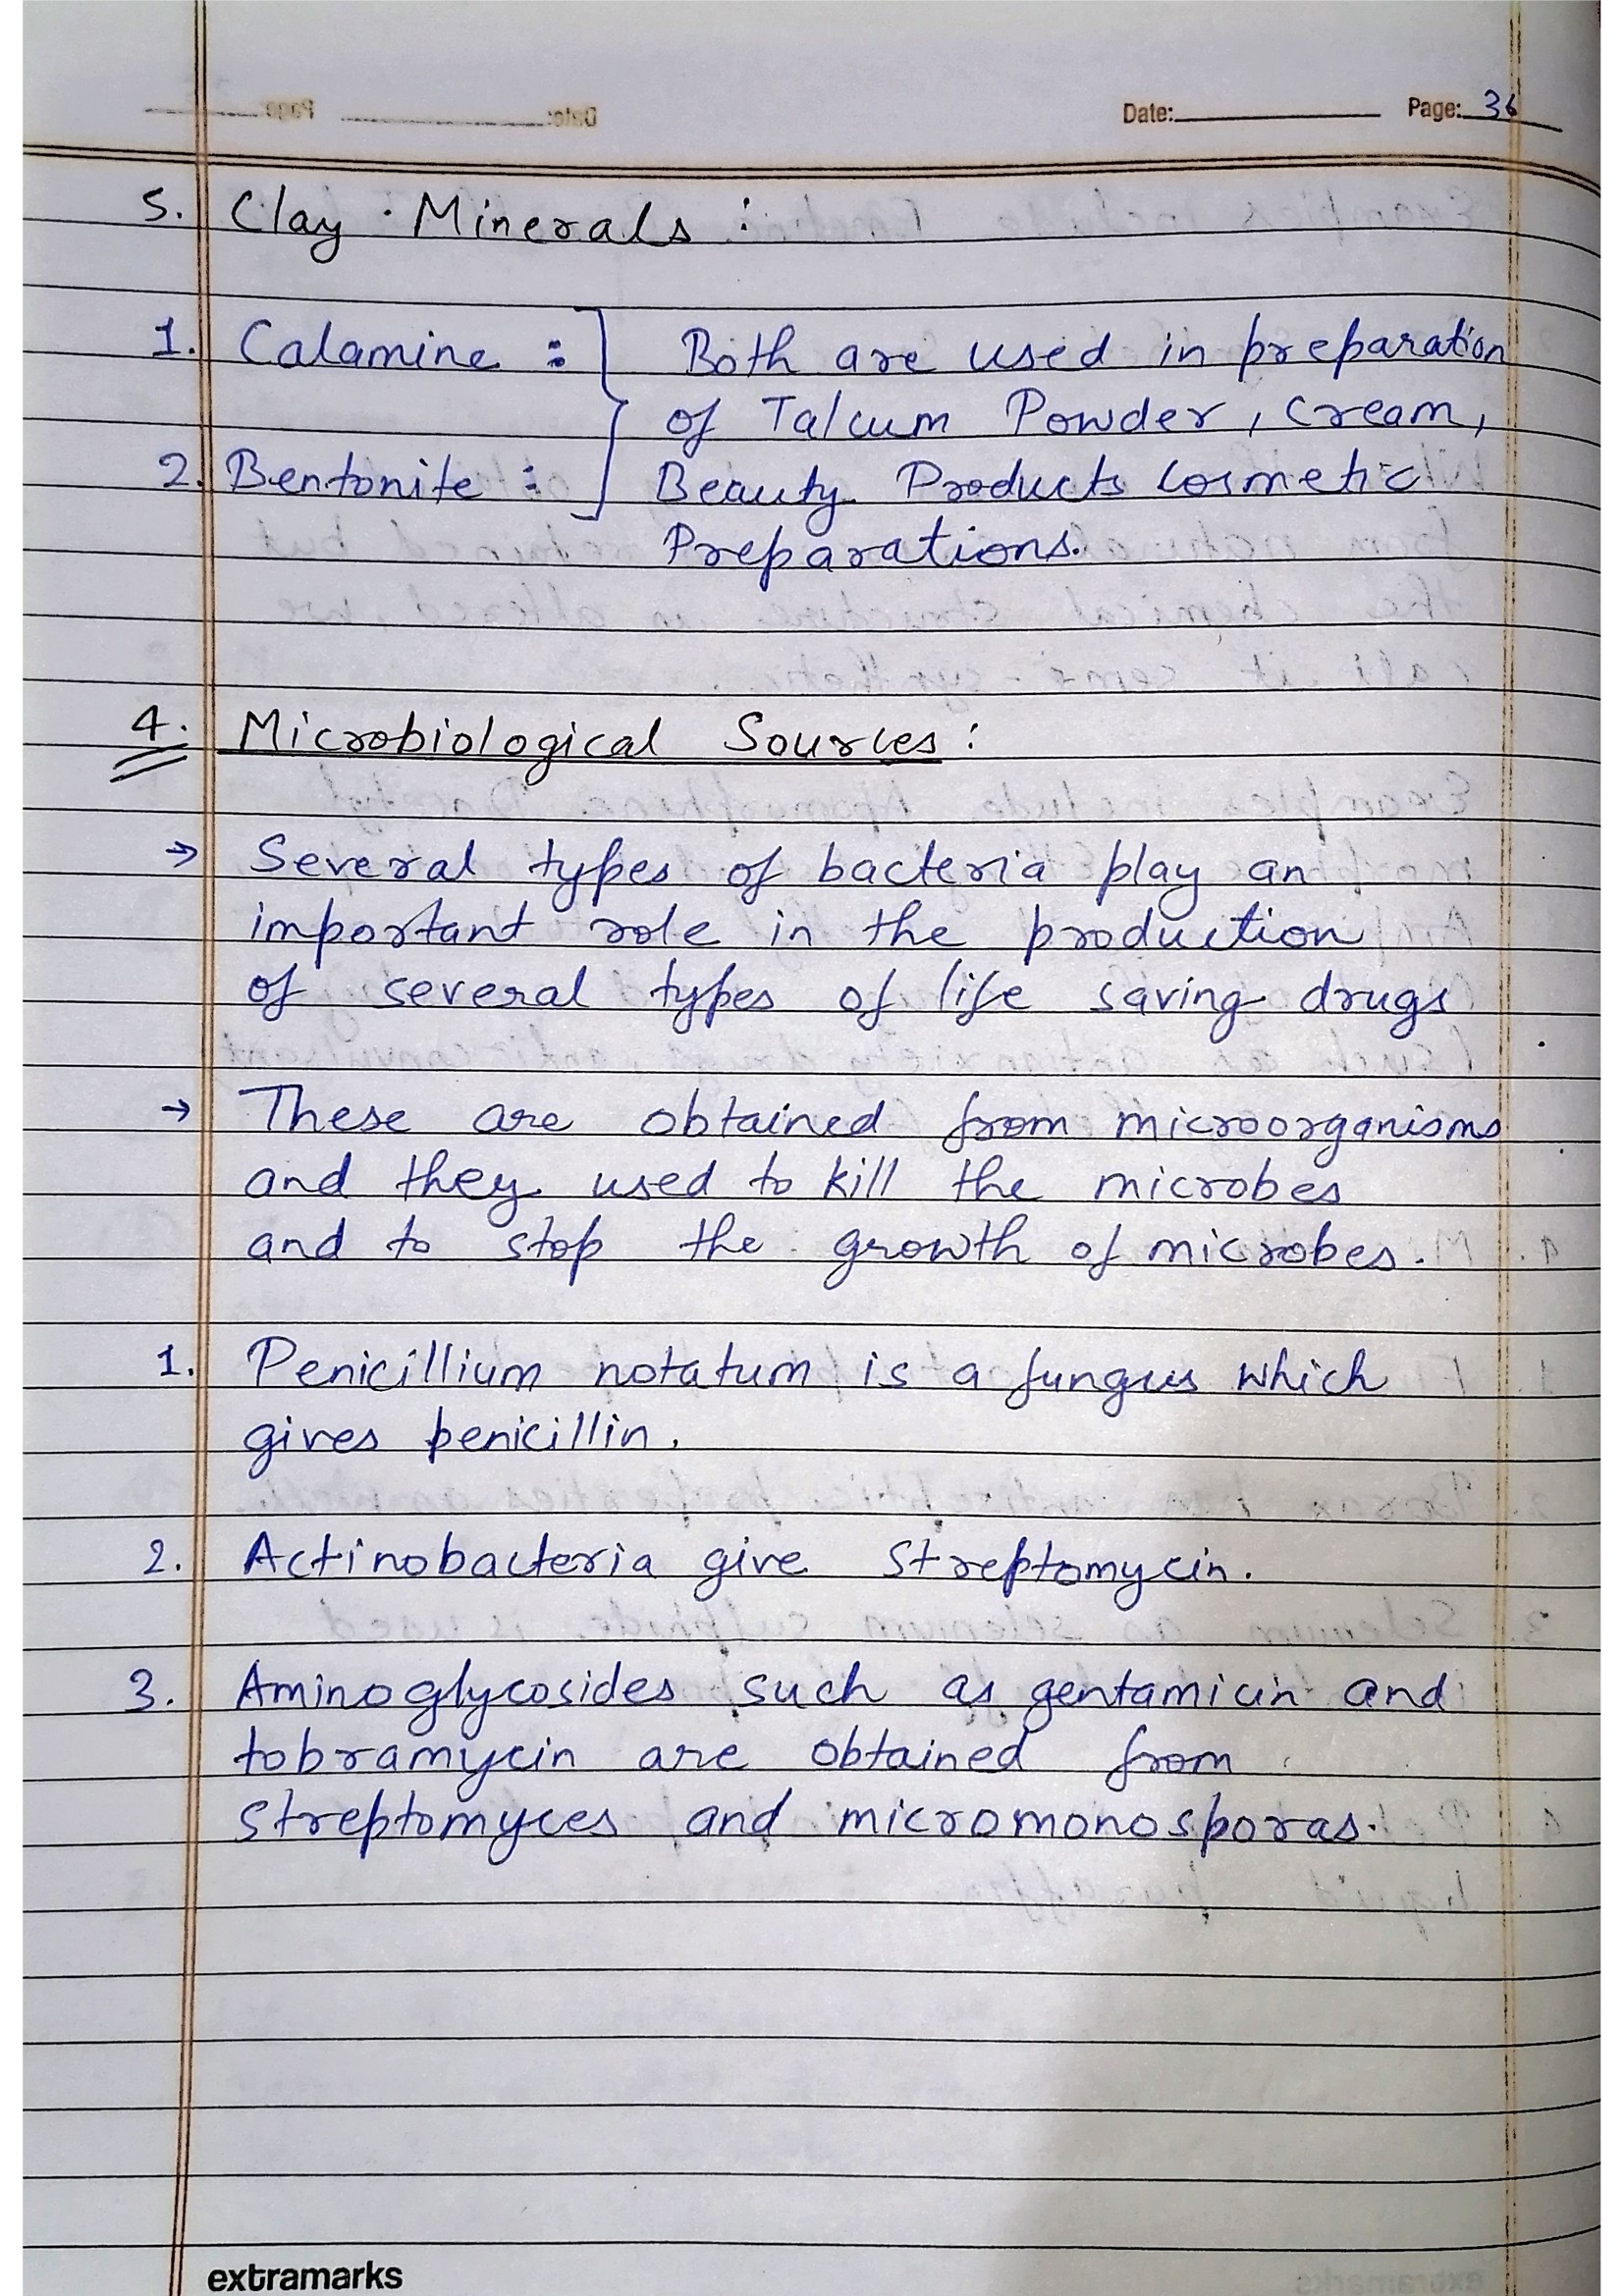 Date: Page: 36
5. Clay Minerals :
1. Calamine : Both are used in preparation
of Talcum Powder, Cream,
2. Bentonite : Beauty Products Cosmetic
Preparations.
4. Microbiological Sources :
→ Several types of bacteria play an
important role in the production
of several types of life saving drugs
→ These are obtained from microorganisms
and they used to kill the microbes
and to stop the growth of microbes.
1. Penicillium notatum is a fungus which
gives penicillin.
2. Actinobacteria give Streptomycin.
3. Aminoglycosides such as gentamicin and
tobramycin are obtained from
Streptomyces and micromonosporas.
extramarks